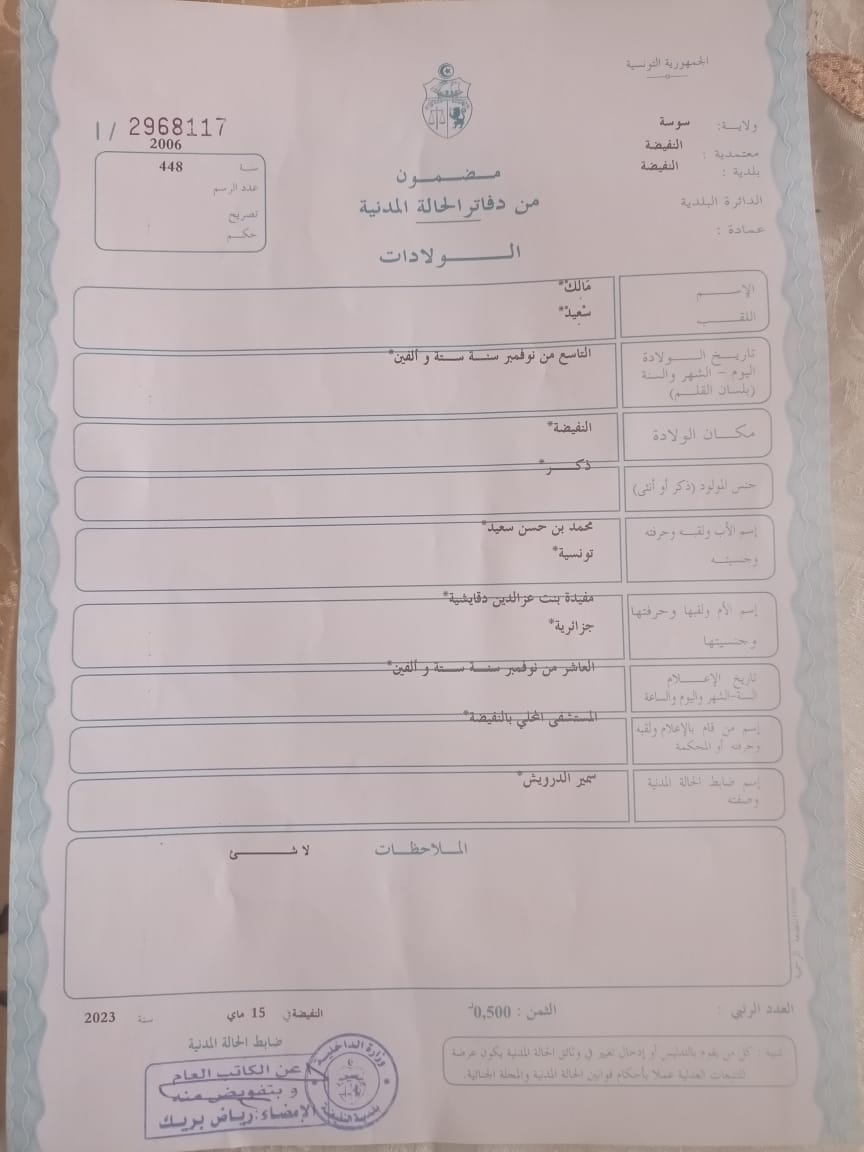 الجمهورية التونسية
ولايـة: سوسة
معتمدية : النفيضة
بلدية : النفيضة
الدائرة البلدية
عمادة :
I / 2968117
سنة 2006
عدد الرسم 448
تصريح
حكم
مضمون
من دفاتر الحالة المدنية
الولادات
الإسم مَالك*
اللقب سْعِيدْ*
تاريخ الولادة التاسع من نوفمبر سنة ستة و ألفين*
اليوم – الشهر والسنة
(بلسان القلم)
مكان الولادة النفيضة*
جنس المولود (ذكر أو أنثى) ذكر*
إسم الأب ولقبه وحرفته محمد بن حسن سعيد*
وجنسيته تونسية*
إسم الأم ولقبها وحرفتها مفيدة بنت عزالدين دقايشية*
وجنسيتها جزائرية*
تاريخ الإعلام العاشر من نوفمبر سنة ستة و ألفين*
السنة-الشهر واليوم والساعة
إسم من قام بالإعلام ولقبه المستشفى المحلي بالنفيضة*
وحرفته أو المحكمة
إسم ضابط الحالة المدنية سمير الدرويش*
وصفته
الملاحظات لا شئ
العدد الرتبي :
الثمن : 0,500د
النفيضة في 15 ماي سنة 2023
ضابط الحالة المدنية
تنبيه : كل من يقوم بالتدليس أو إدخال تغيير في وثائق الحالة المدنية يكون عرضة
للتتبعات العدلية عملا بأحكام قوانين الحالة المدنية والمجلة الجنائية.
عن الكاتب العام
و بتفويض منه
الإمضاء: رياض بريك
وزارة الداخلية
بلدية النفيضة